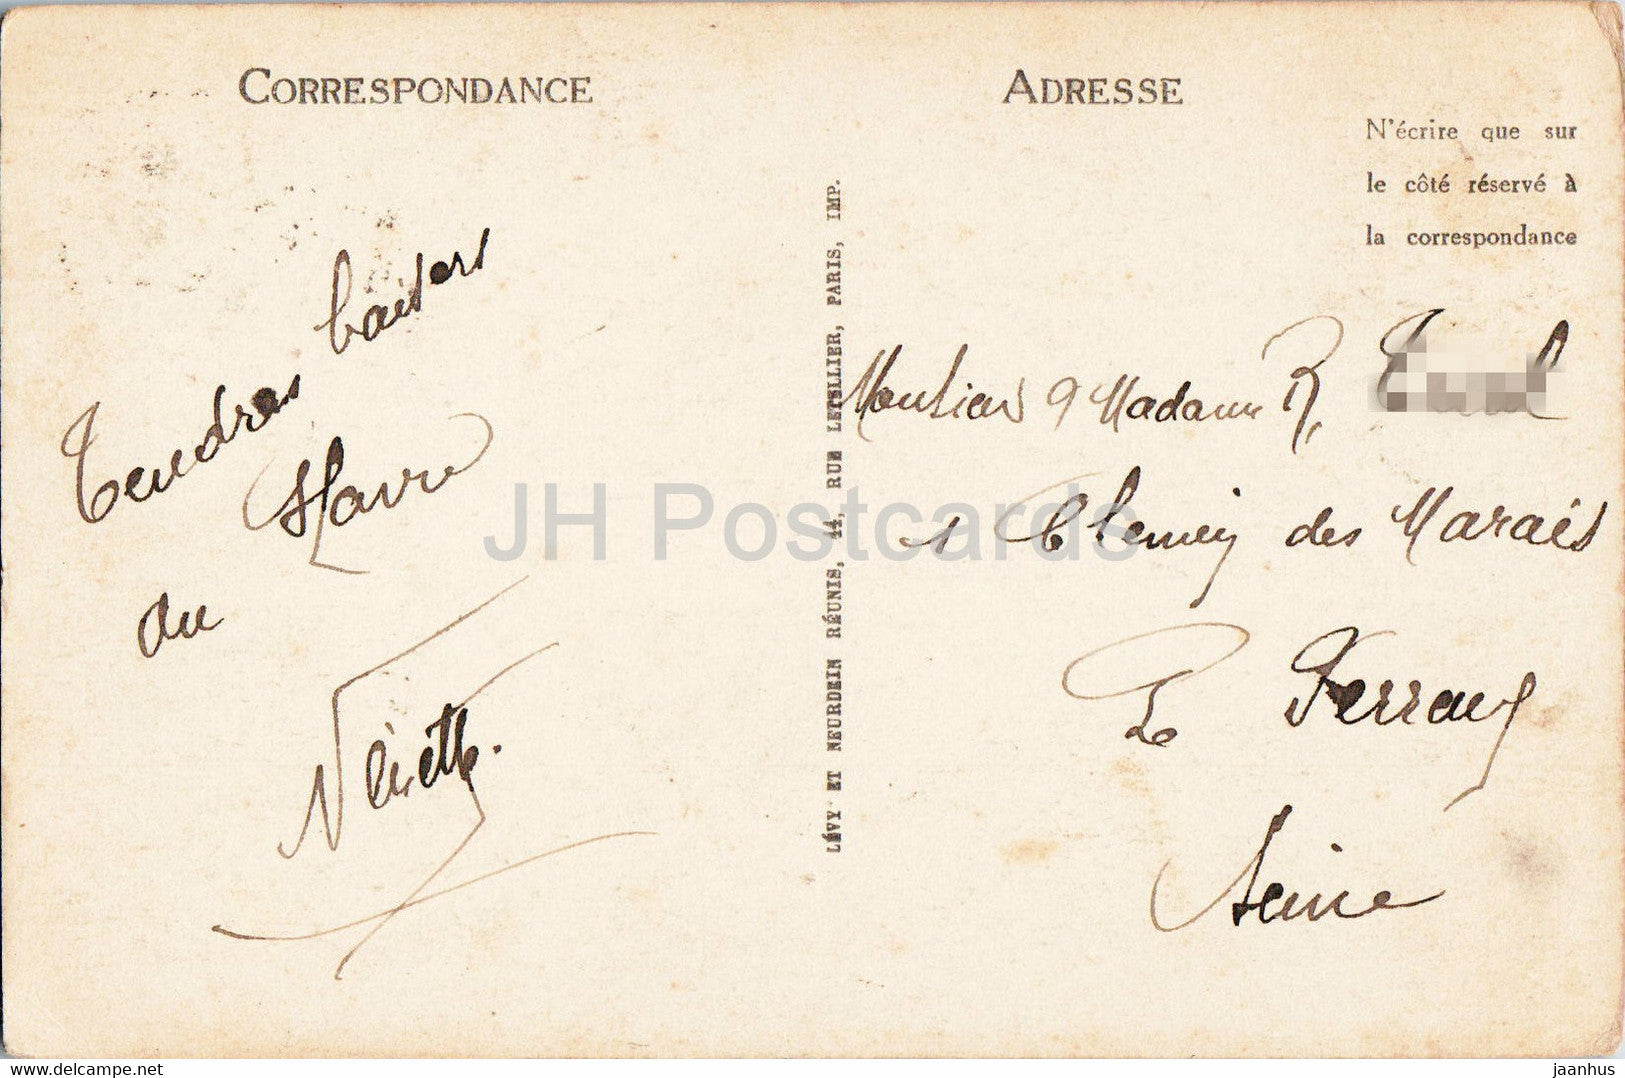 CORRESPONDANCE
ADRESSE
N'écrire que sur
le côté réservé à
la correspondance
Tendres baisers
du Havre
LÉVY ET NEURDEIN RÉUNIS, 44, RUE LETELLIER, PARIS, IMP.
Monsieur & Madame R.
1 Chemin des Marais
Le Perreux
Seine
JH Postcards
hipstamp.com
jaanhus